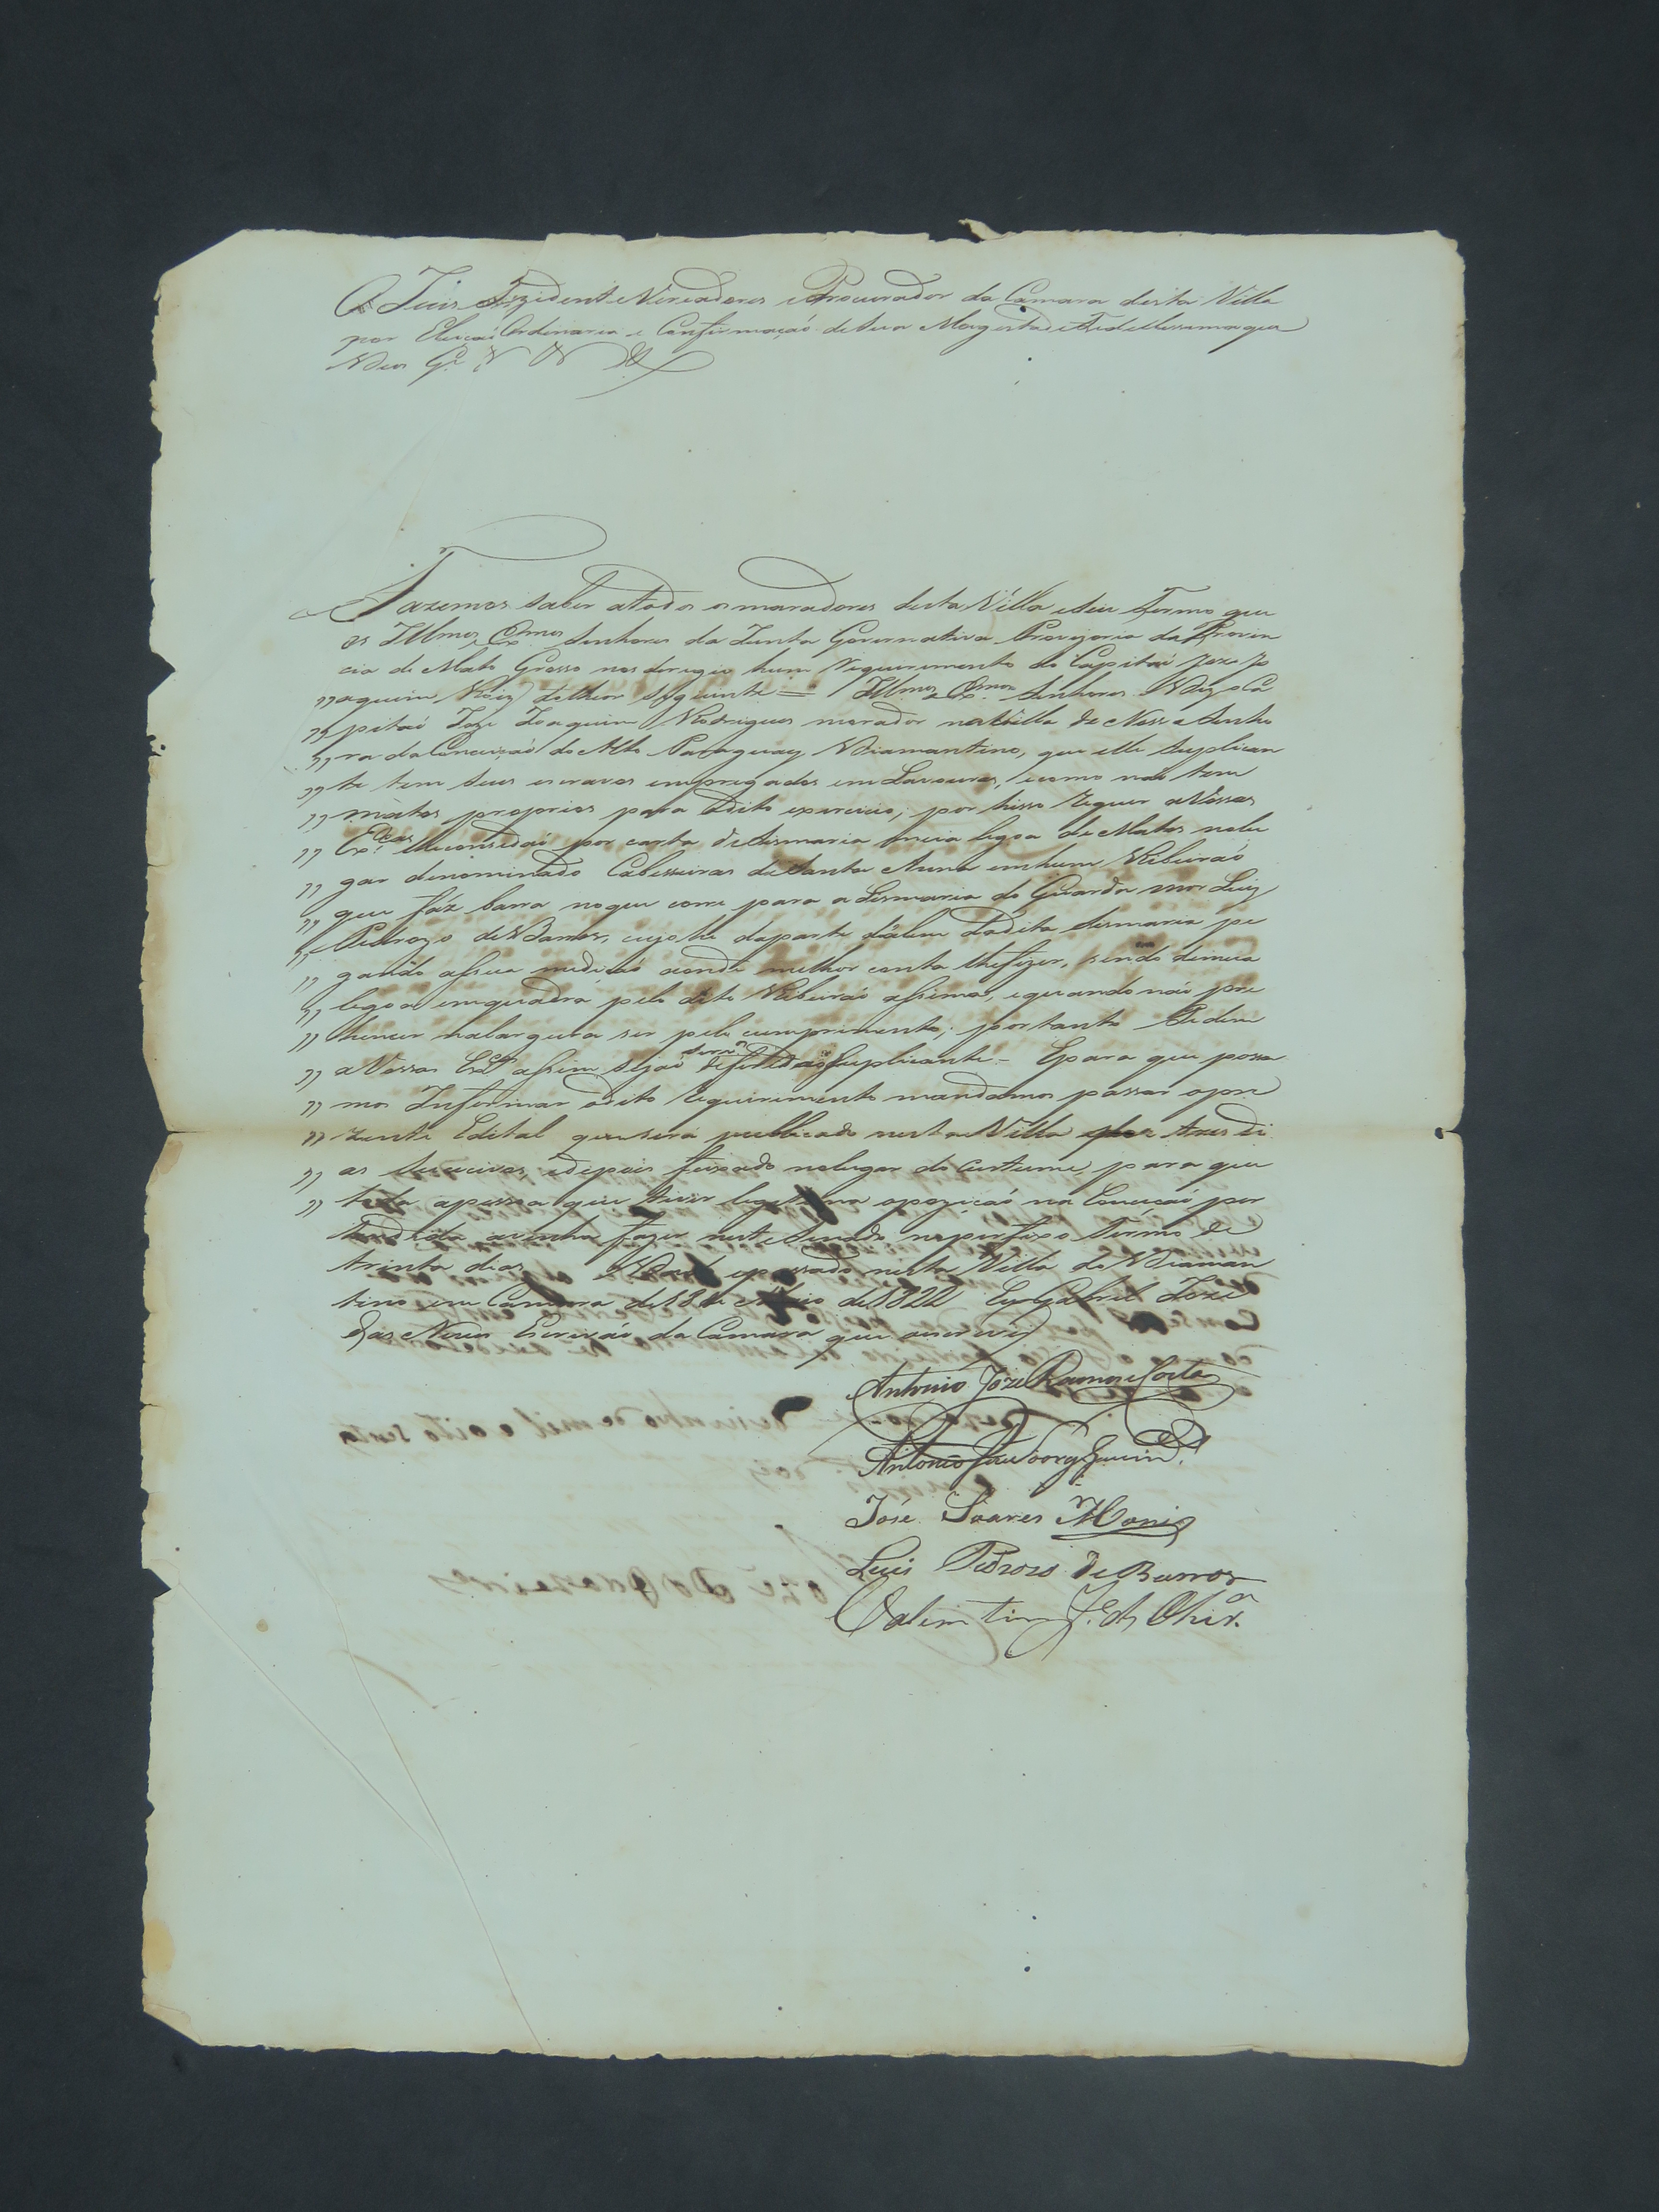 O Juis Prezidente Vereadores e Procurador da Camara desta Villa
por Eleicaõ Ordinaria e Confirmaçaõ de Sua Magestade Fidellissima que
Deos G.e
Fazemos saber atodos os moradores desta Villa eSeu Termo que
os Illmos e Exmos Senhores da Junta Governativa Provizoria da Provin
cia de Mato Grosso nos deregio hum requerimento do Capitaõ Joze Jo
"aquim Roiz do theor seguinte = Illmos e Exmos Senhores Diz o Ca
"pitaõ Joze Joaquim Rodrigues morador na Villa de Nossa Senho
"ra da Conceiçaõ do Alto Paraguay Diamantino, que elle Suplican
"te tem Seus escravos empregados em Lavouras, ecomo naõ tem
"matos proprios para odito exercicio, por hisso requer aVossas
"Exc.as lheconsedaõ por carta deSismaria meia legoa de Matos nolu
"gar denominado Cabesseiras deSanta Anna emhum Ribeiraõ
"que fáz barra noque corre para a Sismaria do Guarda mor Luiz
"Pedrozo deBarros, cujo he daparte dálem dadita Sismaria pe
"gando aSua mediçaõ aonde melhor conta lhefizer, sendo demeia
"legoa emquadra pelo dito Ribeiraõ assima, equando naõ pre
"hencer nalargura ser pelo cumprimento; portanto Pedem
"aVossas Ex.as assim sejaõ Servidos deferir aoSuplicante = Epara que possa
"mos Informar odito requerimento mandamos passar opre
"zente Edital queserá publicado nesta Villa por tres di
"as sucecivos, edepois fixado nolugar do custume, para que
"toda apessoa que tiver legitima opoziçaõ na Conceçaõ per
tendida avenha fazer neste Senado noperfixo Termo de
trinta dias. Dado epassado nesta Villa de Diaman
tino em Camara de 18 de Maio de 1822 Eu Gabriel Joze
das Neves Escrivaõ da Camara que oescrevy
Antonio Joze Ramos e Costa
Antonio
José Soares Moniz
Luis Pedrozo de Barros
Valentim J.e de Olivr.a